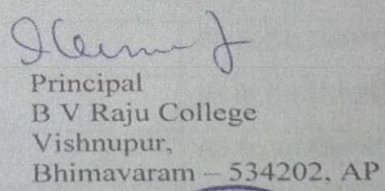 Principal
B V Raju College
Vishnupur,
Bhimavaram – 534202, AP